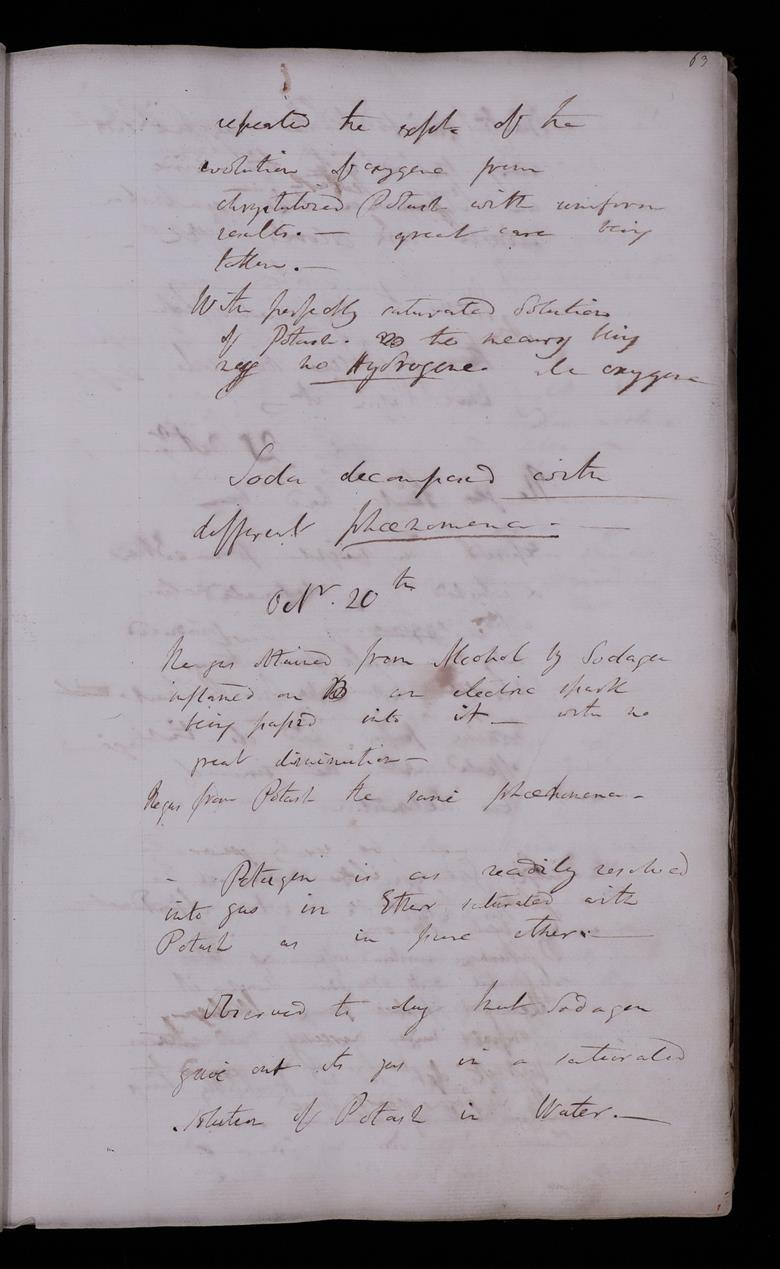 63
repeated the expts of the
evolution of oxygene from
chrystalized Potash with uniform
results. — great care being
taken. —
With perfectly saturated Solution
of Potash. the mercury being
neg no Hydrogene. oxygene
Soda decomposed with
different phænomena. —
Octr. 20th
The gas obtained from Alcohol by Sodagen
inflamed on an electric spark
being passed into it — with no
great diminution —
The gas from Potash the same phænomena —
- Potagen is as readily resolved
into gas in Ether saturated with
Potash as in pure ether. —
Observed to day that Sodagen
gave out its gas in a saturated
solution of Potash in Water. —